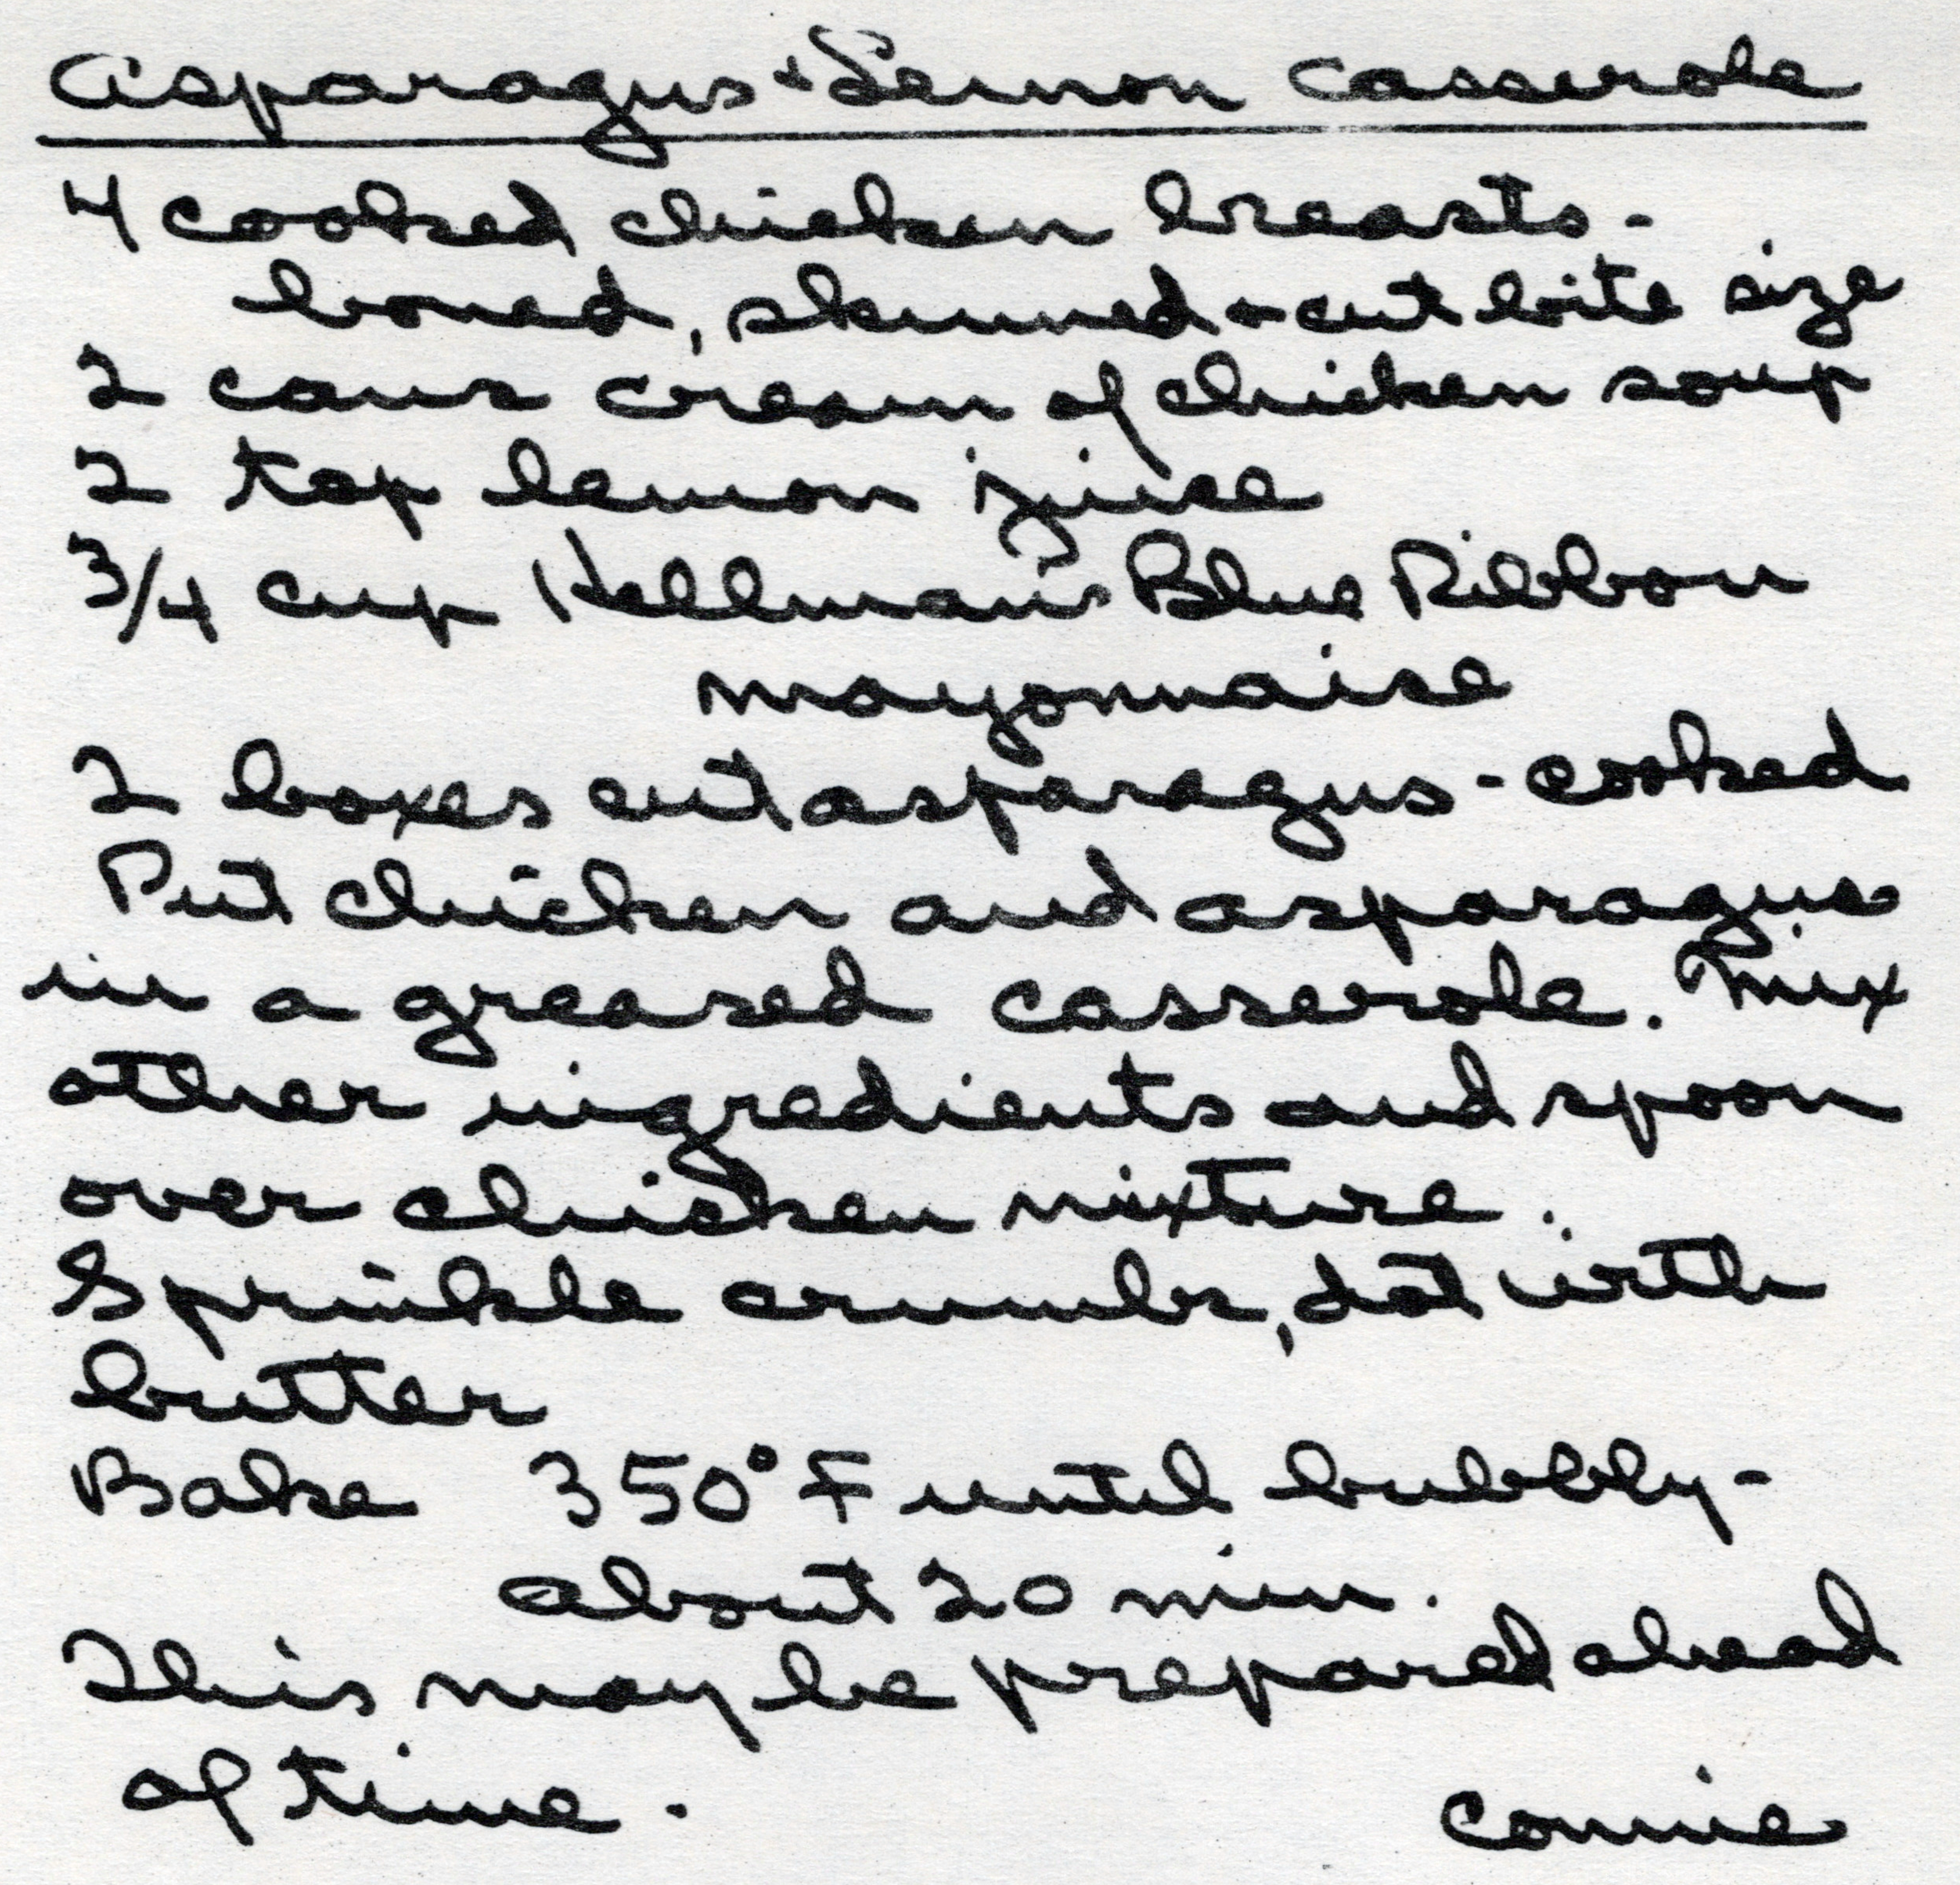 Asparagus + Lemon Casserole
4 cooked chicken breasts -
boned, skinned & cut bite size
2 cans cream of chicken soup
2 tsp lemon juice
3/4 cup Hellman's Blue Ribbon
mayonnaise
2 boxes cut asparagus - cooked
Put chicken and asparagus
in a greased casserole. Mix
other ingredients and spoon
over chicken mixture.
Sprinkle crumbs, dot with
butter
Bake 350° F until bubbly -
about 20 min.
This may be prepared ahead
of time.
Connie